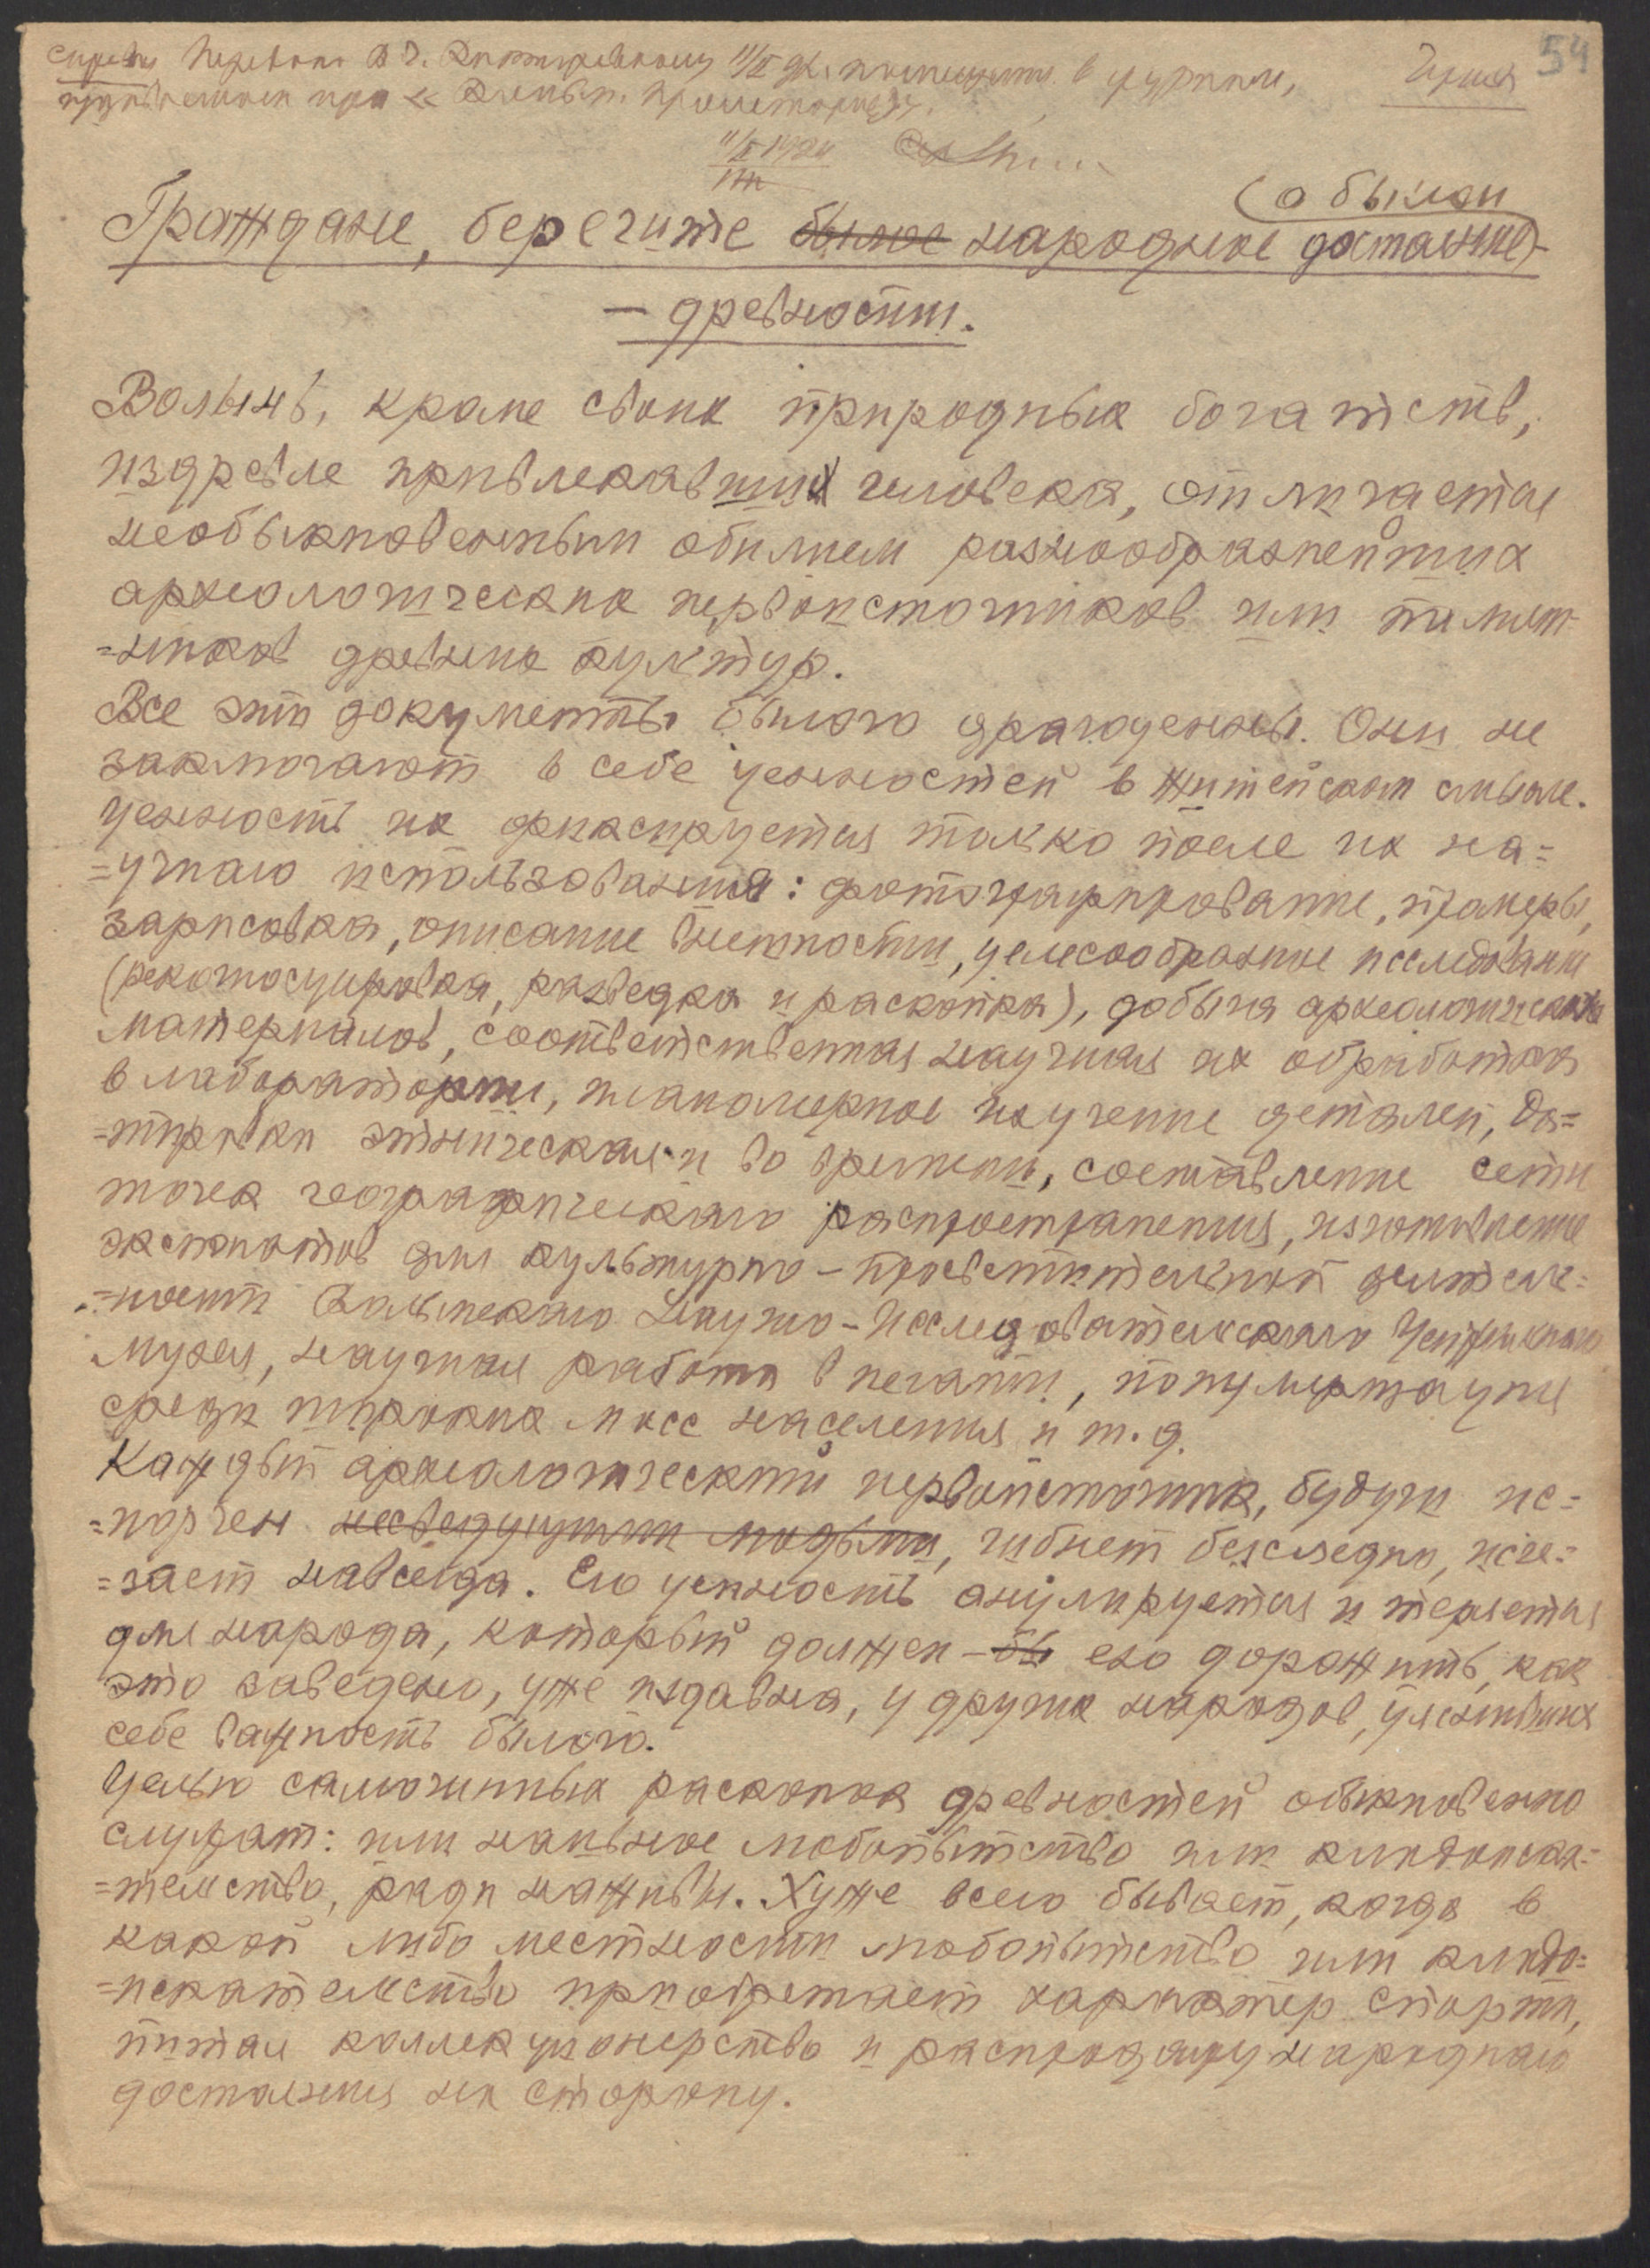 54
11/II 1924
(о былом
Граждане, берегите былое народное достояние)-
- древности.
Волынь, кроме своих природных богатств,
издревле привлекавших человека, отличается
необыкновенным обилием разнообразнейших
археологических первоисточников или памят-
=ников древних культур.
Все эти документы былого драгоценны. Они не
заключают в себе ценностей в житейском смысле.
Ценность их фиксируется только после их на=
=учнаго использования: фотографирование, промеры,
зарисовка, описание внешности, целесообразное исследование
(рекогносцировка, разведка и раскопка), добыча археологических
материалов, соответственная научная их обработка
в лаборатории, планомерное изучение деталей, да=
=тировки этническая и во времени, составление сети
точек географическаго распространения, изготовление
экспонатов для культурно-просветительной деятель=
=ности Волынскаго Научно-Исследовательскаго
Музея, научная работа в печати, популяризация
среди широких масс населения и т. д.
Каждый археологический первоисточник, будучи ис=
=порчен несведующими людьми, гибнет безследно, исче=
=зает навсегда. Его ценность анулируется и теряется
для народа, который должен-бы его дорожить, как
это заведено, уже издавна, у других народов, уяснивших
себе важность былого.
Целью самочинных раскопок древностей обыкновенно
служат: или наивное любопытство или кладоиска-
=тельство, ради наживы. Хуже всего бывает, когда в
какой либо местности любопытство или кладо=
=искательство приобретает характер спорта,
питая коллекционерство и распродажу народнаго
достояния на сторону.